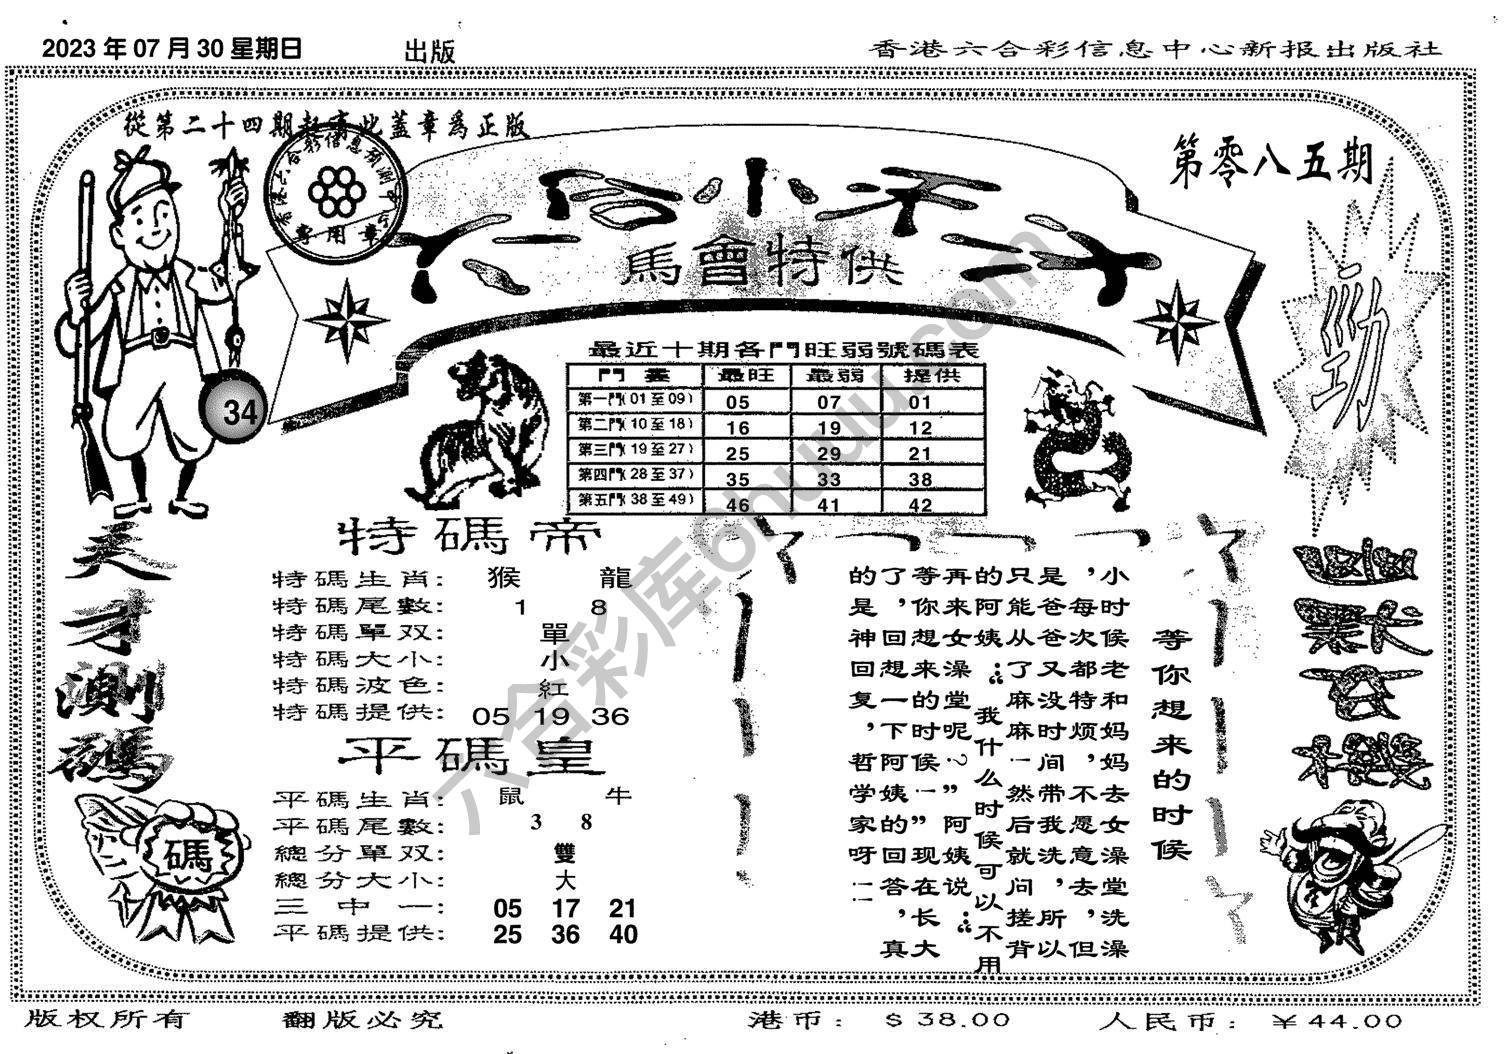 2023 年 07 月 30 星期日
出版
香港六合彩信息中心新报出版社
從第二十四期起有此蓋章爲正版
香港六合彩信息預測中心
專用章
第零八五期
六合小天才
馬會特供
勁
34
最近十期各門旺弱號碼表
門 最旺 最弱 提供
第一門(01至09) 05 07 01
第二門(10至18) 16 19 12
第三門(19至27) 25 29 21
第四門(28至37) 35 33 38
第五門(38至49) 46 41 42
天才測碼
碼
特碼帝
特碼生肖: 猴 龍
特碼尾數: 1 8
特碼單双: 單
特碼大小: 小
特碼波色: 紅
特碼提供: 05 19 36
平碼皇
平碼生肖: 鼠 牛
平碼尾數: 3 8
總分單双: 雙
總分大小: 大
三中一: 05 17 21
平碼提供: 25 36 40
幽默玄機
等你想来的时候
小时候老和妈妈去女澡堂洗澡
，每次都特烦，不愿意去，但
是爸爸又没时间带我洗，所以
只能从了麻麻一然后就问搓背
的阿姨：“我什么时候可以不用
再来女澡堂呢？”阿姨说：“
等你想来的时候一”现在长大
了，回想一下阿姨的回答，真
的是神回复，哲学家呀！！
六合彩库6huuu.com
版权所有
翻版必究
港币： $38.00
人民币： ￥44.00